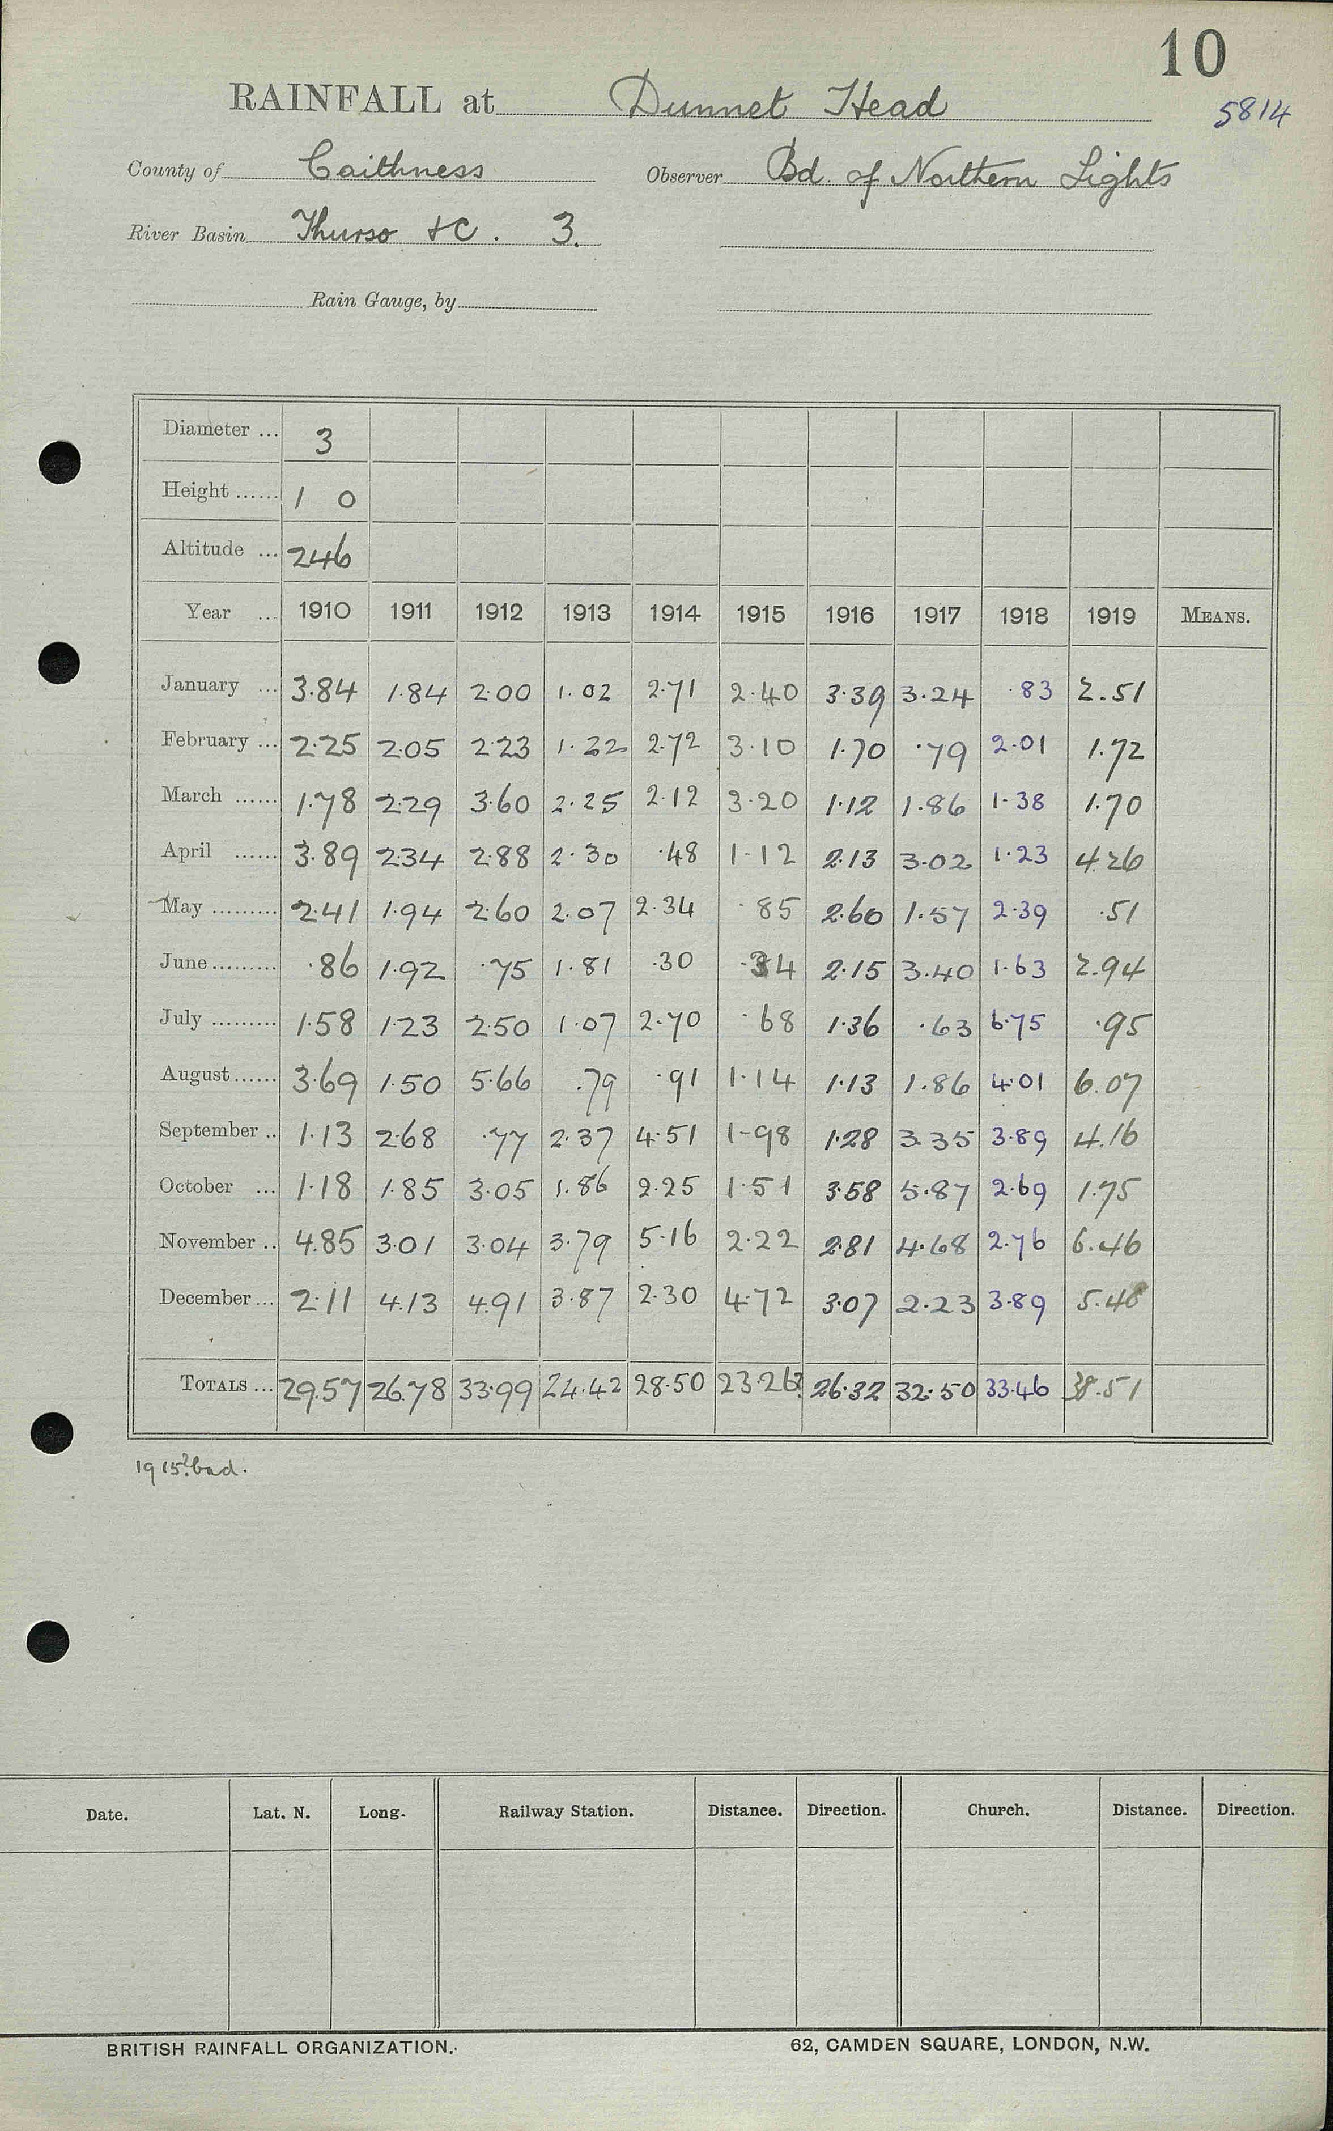 10
RAINFALL at Dunnet Head
5814
County of Caithness Observer Bd. of Northern Lights
River Basin Thurso &C. 3.
Rain Gauge, by
Diameter ... 3
Height ...... 1 0
Altitude ... 246
Year ... 1910 1911 1912 1913 1914 1915 1916 1917 1918 1919 MEANS.
January ... 3.84 1.84 2.00 1.02 2.71 2.40 3.39 3.24 .83 2.51
February ... 2.25 2.05 2.23 1.22 2.72 3.10 1.70 .79 2.01 1.72
March ...... 1.78 2.29 3.60 2.25 2.12 3.20 1.12 1.86 1.38 1.70
April ...... 3.89 2.34 2.88 2.30 .48 1.12 2.13 3.02 1.23 4.26
May ......... 2.41 1.94 2.60 2.07 2.34 .85 2.60 1.57 2.39 .51
June ......... .86 1.92 .75 1.81 .30 .34 2.15 3.40 1.63 2.94
July ......... 1.58 1.23 2.50 1.07 2.70 .68 1.36 .63 6.75 .95
August ...... 3.69 1.50 5.66 .79 .91 1.14 1.13 1.86 4.01 6.07
September .. 1.13 2.68 .77 2.37 4.51 1.98 1.28 3.35 3.89 4.16
October ... 1.18 1.85 3.05 1.86 2.25 1.51 3.58 5.87 2.69 1.75
November .. 4.85 3.01 3.04 3.79 5.16 2.22 2.81 4.68 2.76 6.46
December ... 2.11 4.13 4.91 3.87 2.30 4.72 3.07 2.23 3.89 5.48
TOTALS ... 29.57 26.78 33.99 24.42 28.50 23.26? 26.32 32.50 33.46 38.51
1915? bad.
Date. Lat. N. Long. Railway Station. Distance. Direction. Church. Distance. Direction.
BRITISH RAINFALL ORGANIZATION. 62, CAMDEN SQUARE, LONDON, N.W.